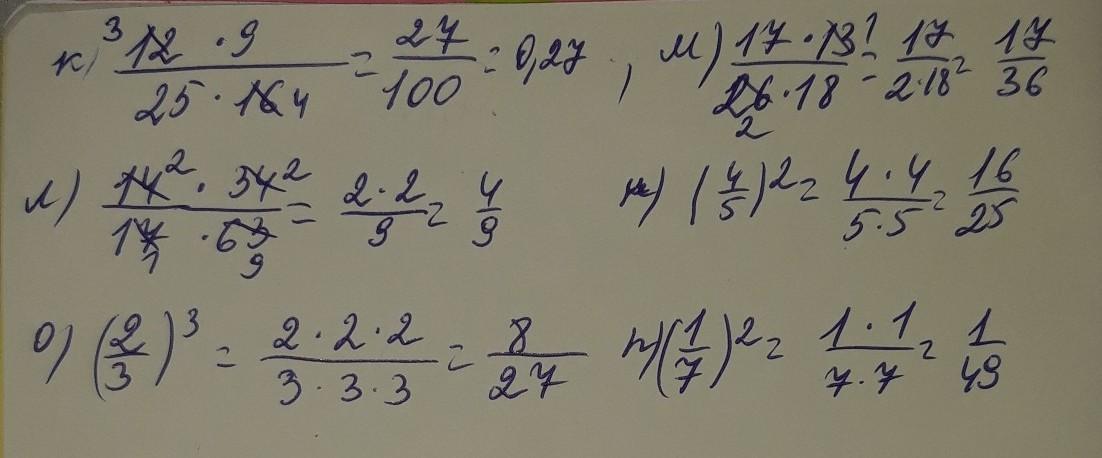 к) ³12 · 9 / 25 · 16 4 = 27 / 100 = 0,27 , м) 17 · 13 1 / 26 2 · 18 = 17 / 2·18 = 17 / 36
л) 14² · 34² / 17 1 · 63 9 = 2 · 2 / 9 = 4 / 9 н) (4/5)² = 4 · 4 / 5 · 5 = 16 / 25
о) (2/3)³ = 2 · 2 · 2 / 3 · 3 · 3 = 8 / 27 п) (1/7)² = 1 · 1 / 7 · 7 = 1 / 49